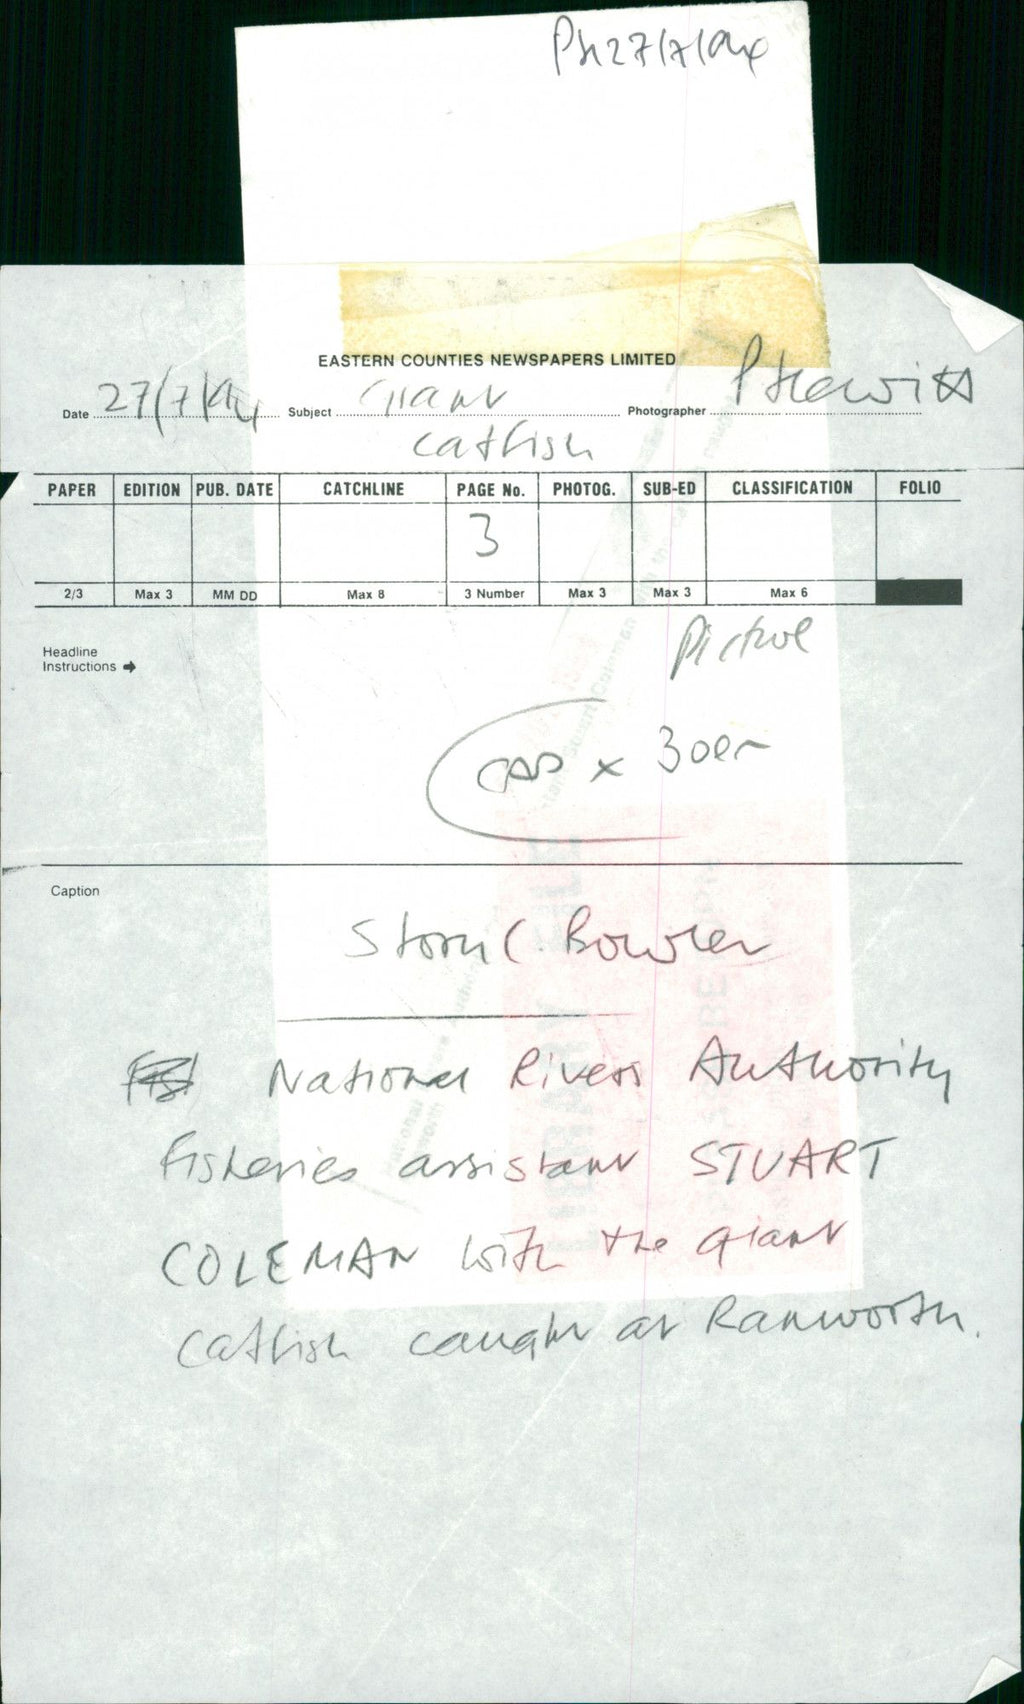 PH 27/7/94
EASTERN COUNTIES NEWSPAPERS LIMITED
Date 27/7/94 Subject Giant Photographer P Hewitt
catfish
PAPER EDITION PUB. DATE CATCHLINE PAGE No. PHOTOG. SUB-ED CLASSIFICATION FOLIO
3
2/3 Max 3 MM DD Max 8 3 Number Max 3 Max 3 Max 6
Headline
Instructions
Picture
x 30em
Caption
Story C. Bowler
National Rivers Authority
fisheries assistant STUART
COLEMAN with the giant
catfish caught at Ranworth.